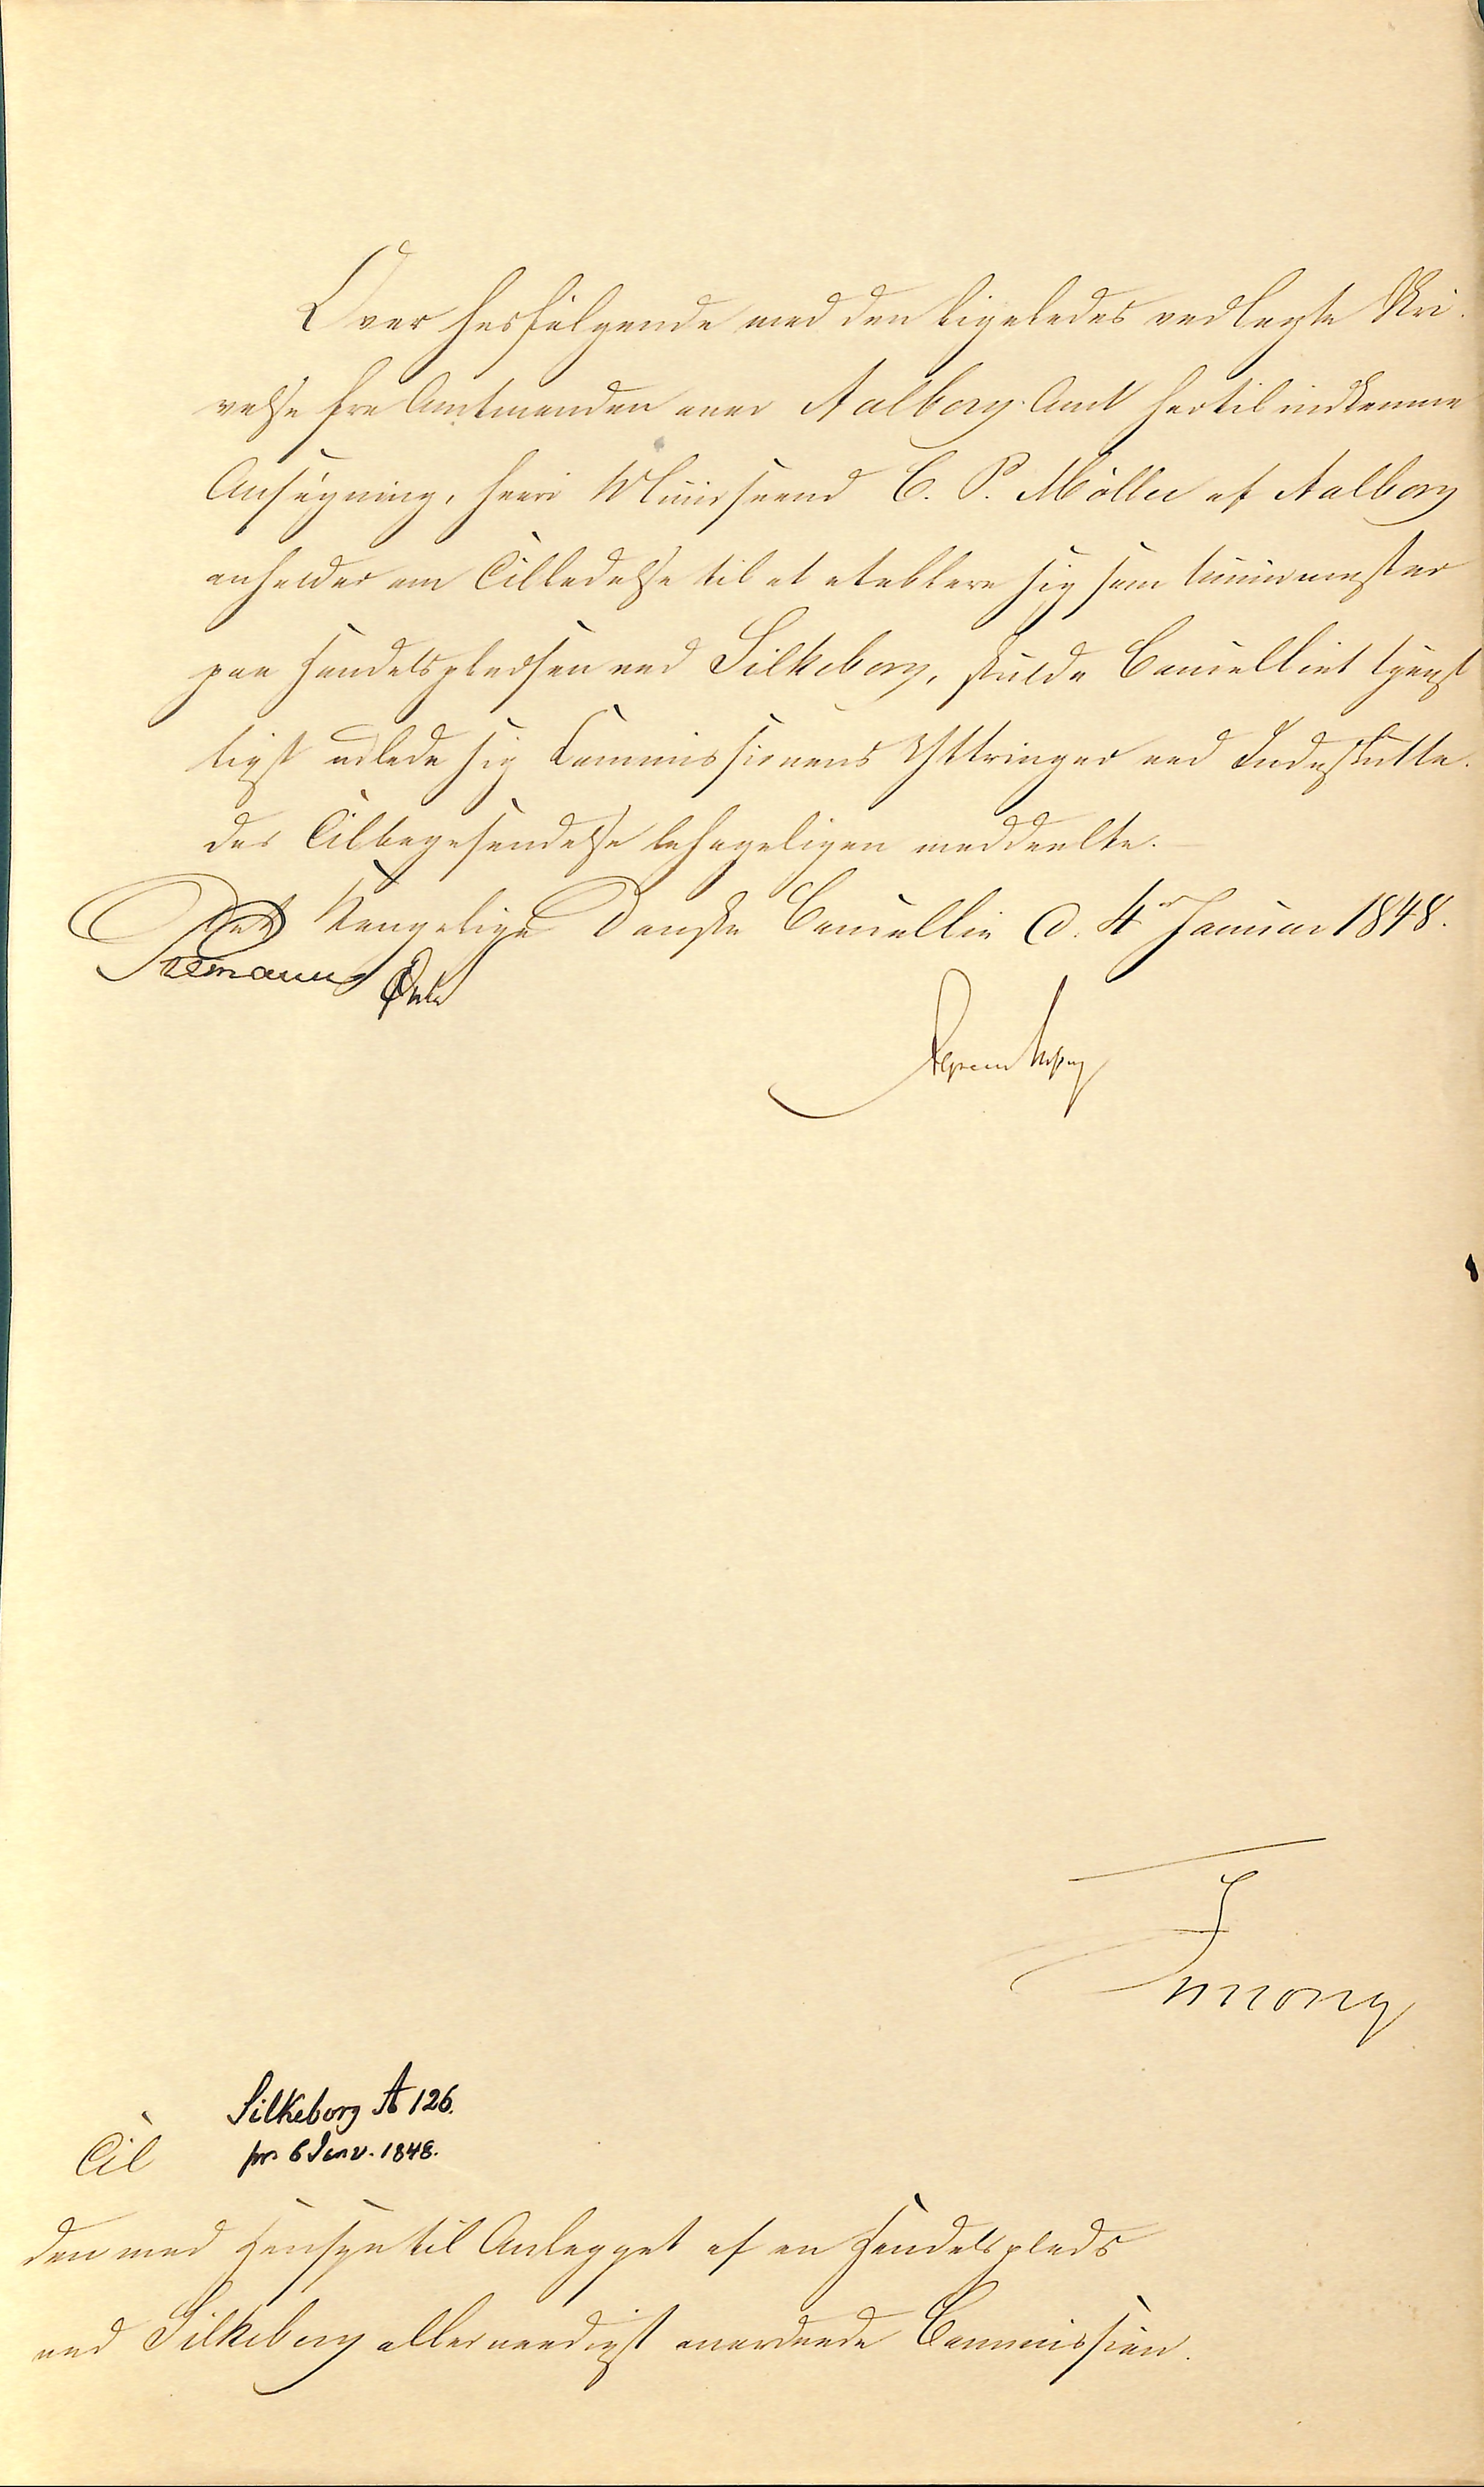 Over hosfølgende med den ligeledes vedlagte Skri-
velse fra Amtmanden over Aalborg Amt hertil indkomne
Ansøgning, hvori Muursvend C. P. Møller af Aalborg
anholder om Tilladelse til at etablere sig som Muurmester
paa Handelspladsen ved Silkeborg, skulde Cancelliet tjenst-
ligst udbede sig Commissionens Yttringer ved Indesluttede-
des Tilbagesendelse behageligen meddeelte.
Det Kongelige Danske Cancellie d. 4de Januar 1848.
Ørsted
Silkeborg A 126.
Til pr. 6 Janv. 1848.
den med Hensyn til Anlægget af en Handelsplads
ved Silkeborg allernaadigst anordnede Commission.